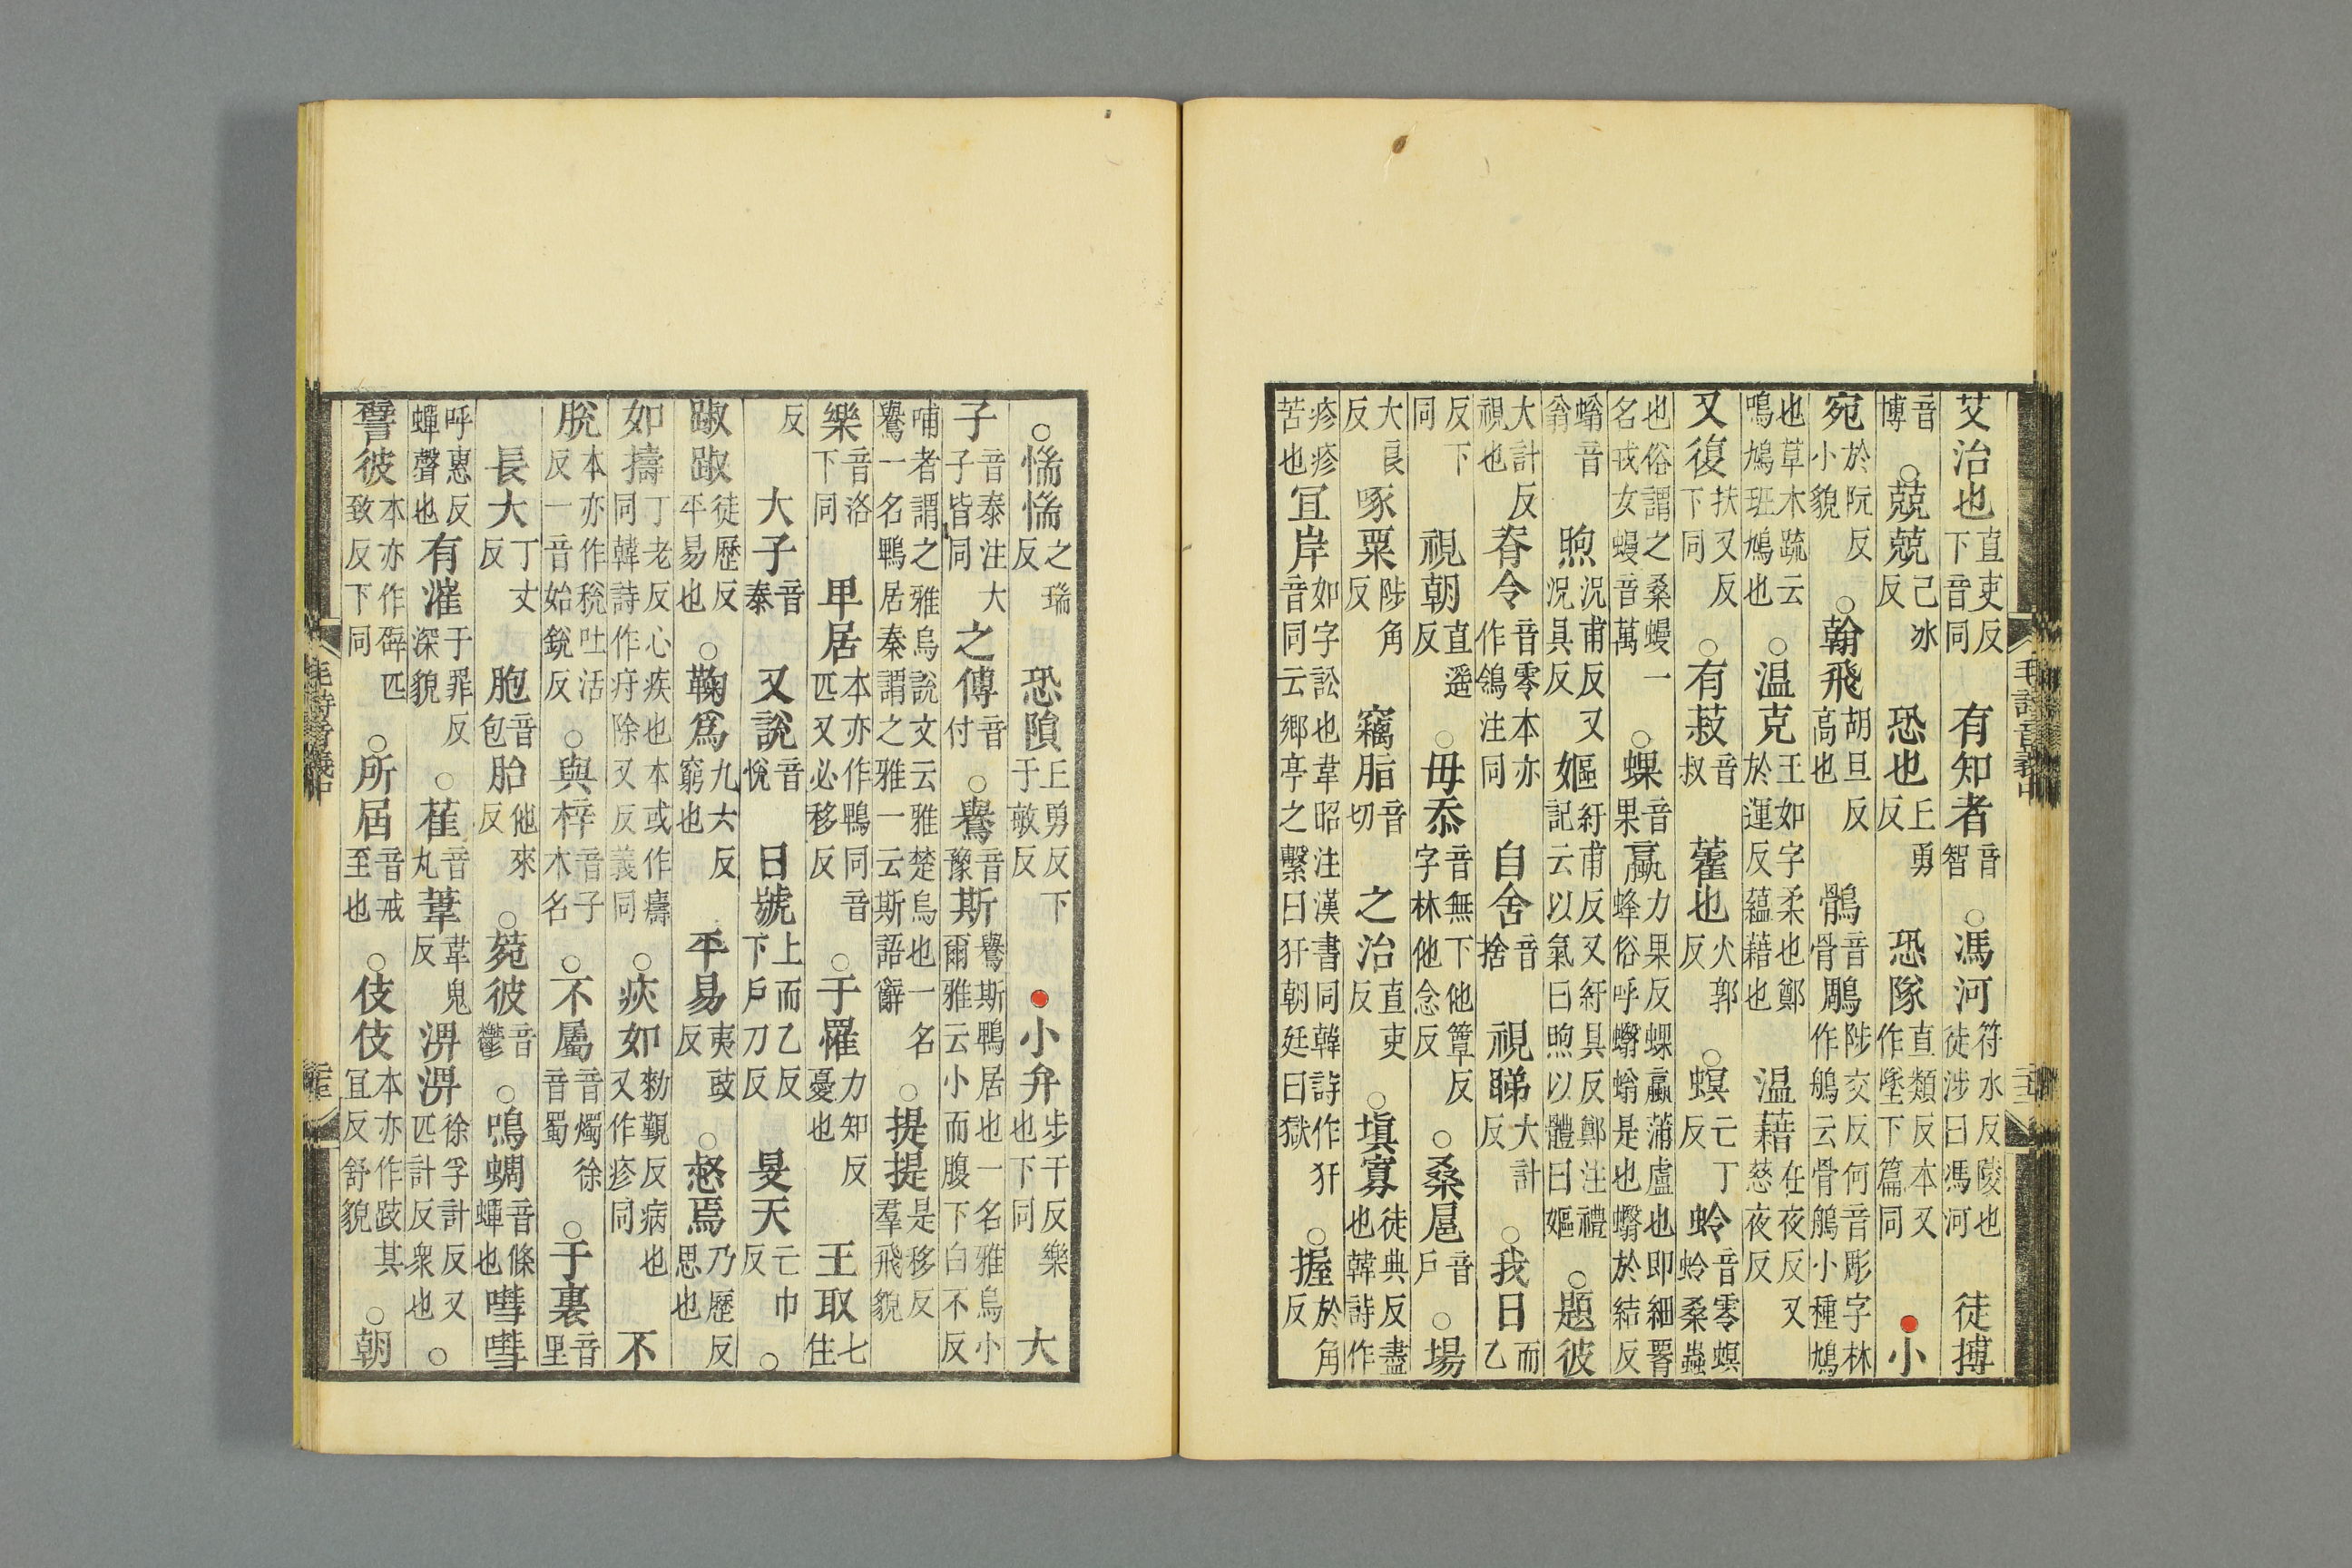 毛詩音義中
艾治也直吏反下音同有知者音智○馮河符水反陵也徒涉曰馮河徒搏
音博○兢兢己冰反恐也丘勇反恐隊直類反本又作墜下篇同●小
宛於阮反小貌○翰飛胡旦反高也鶻音骨鵰陟交反何音彫字林作鵃云骨鵃小種鳩
也草木疏云鳴鳩班鳩也○温克王如字柔也鄭於運反蘊藉也温藉在夜反又慈夜反
又復扶又反下同○有菽音叔藿也火郭反○螟亡丁反蛉音零螟蛉桑蟲
也俗謂之桑蟃一名戎女蟃音萬○蜾音果蠃力果反蜾蠃蒲盧也即細腰蜂俗呼蠮螉是也蠮於結反
螉音翁煦況甫反又況具反嫗紆甫反又紆具反鄭注禮記云以氣曰煦以體曰嫗○題彼
大計反視也脊令音零本亦作鴒注同自舍音捨視睇大計反○我日而乙
反下同視朝直遥反○毋忝音無下他簟反字林他念反○桑扈音戶○場
大良反啄粟陟角反竊脂音切之治直吏反○填寡徒典反盡也韓詩作
疹疹苦也宜岸如字訟也韋昭注漢書同韓詩作犴音同云鄉亭之繫曰犴朝廷曰獄○握於角反
○惴惴之瑞反恐隕丘勇反下于敏反●小弁步干反樂也下同大
子音泰注大子皆同之傅音付○鸒音豫斯鸒斯鵯居也一名雅烏小爾雅云小而腹下白不反
哺者謂之雅烏說文云雅楚烏也一名鸒一名鵯居秦謂之雅一云斯語辭○提提是移反羣飛貌
樂音洛下同卑居本亦作鵯同音匹又必移反○于罹力知反憂也王取七住
反大子音泰又說音悅日號上而乙反下戶刀反旻天亡巾反○
踧踧徒歷反平易也○鞠爲九六反窮也平易夷豉反○惄焉乃歷反思也
如擣丁老反心疾也本或作㿒同韓詩作疛除又反義同○疢如勑覲反病也又作疹同不
脫本亦作稅吐活反一音始銳反○與梓音子木名○不屬音燭徐音蜀○于裏音里
長大丁丈反胞音包胎他來反○菀彼音鬱○鳴蜩音條蟬也嘒嘒
呼惠反蟬聲也有漼于罪反深貌○萑音丸葦韋鬼反淠淠徐孚計反又匹計反衆也○
譬彼本亦作辟匹致反下同○所屆音戒至也○伎伎本亦作跂其宜反舒貌○朝
毛詩音義中